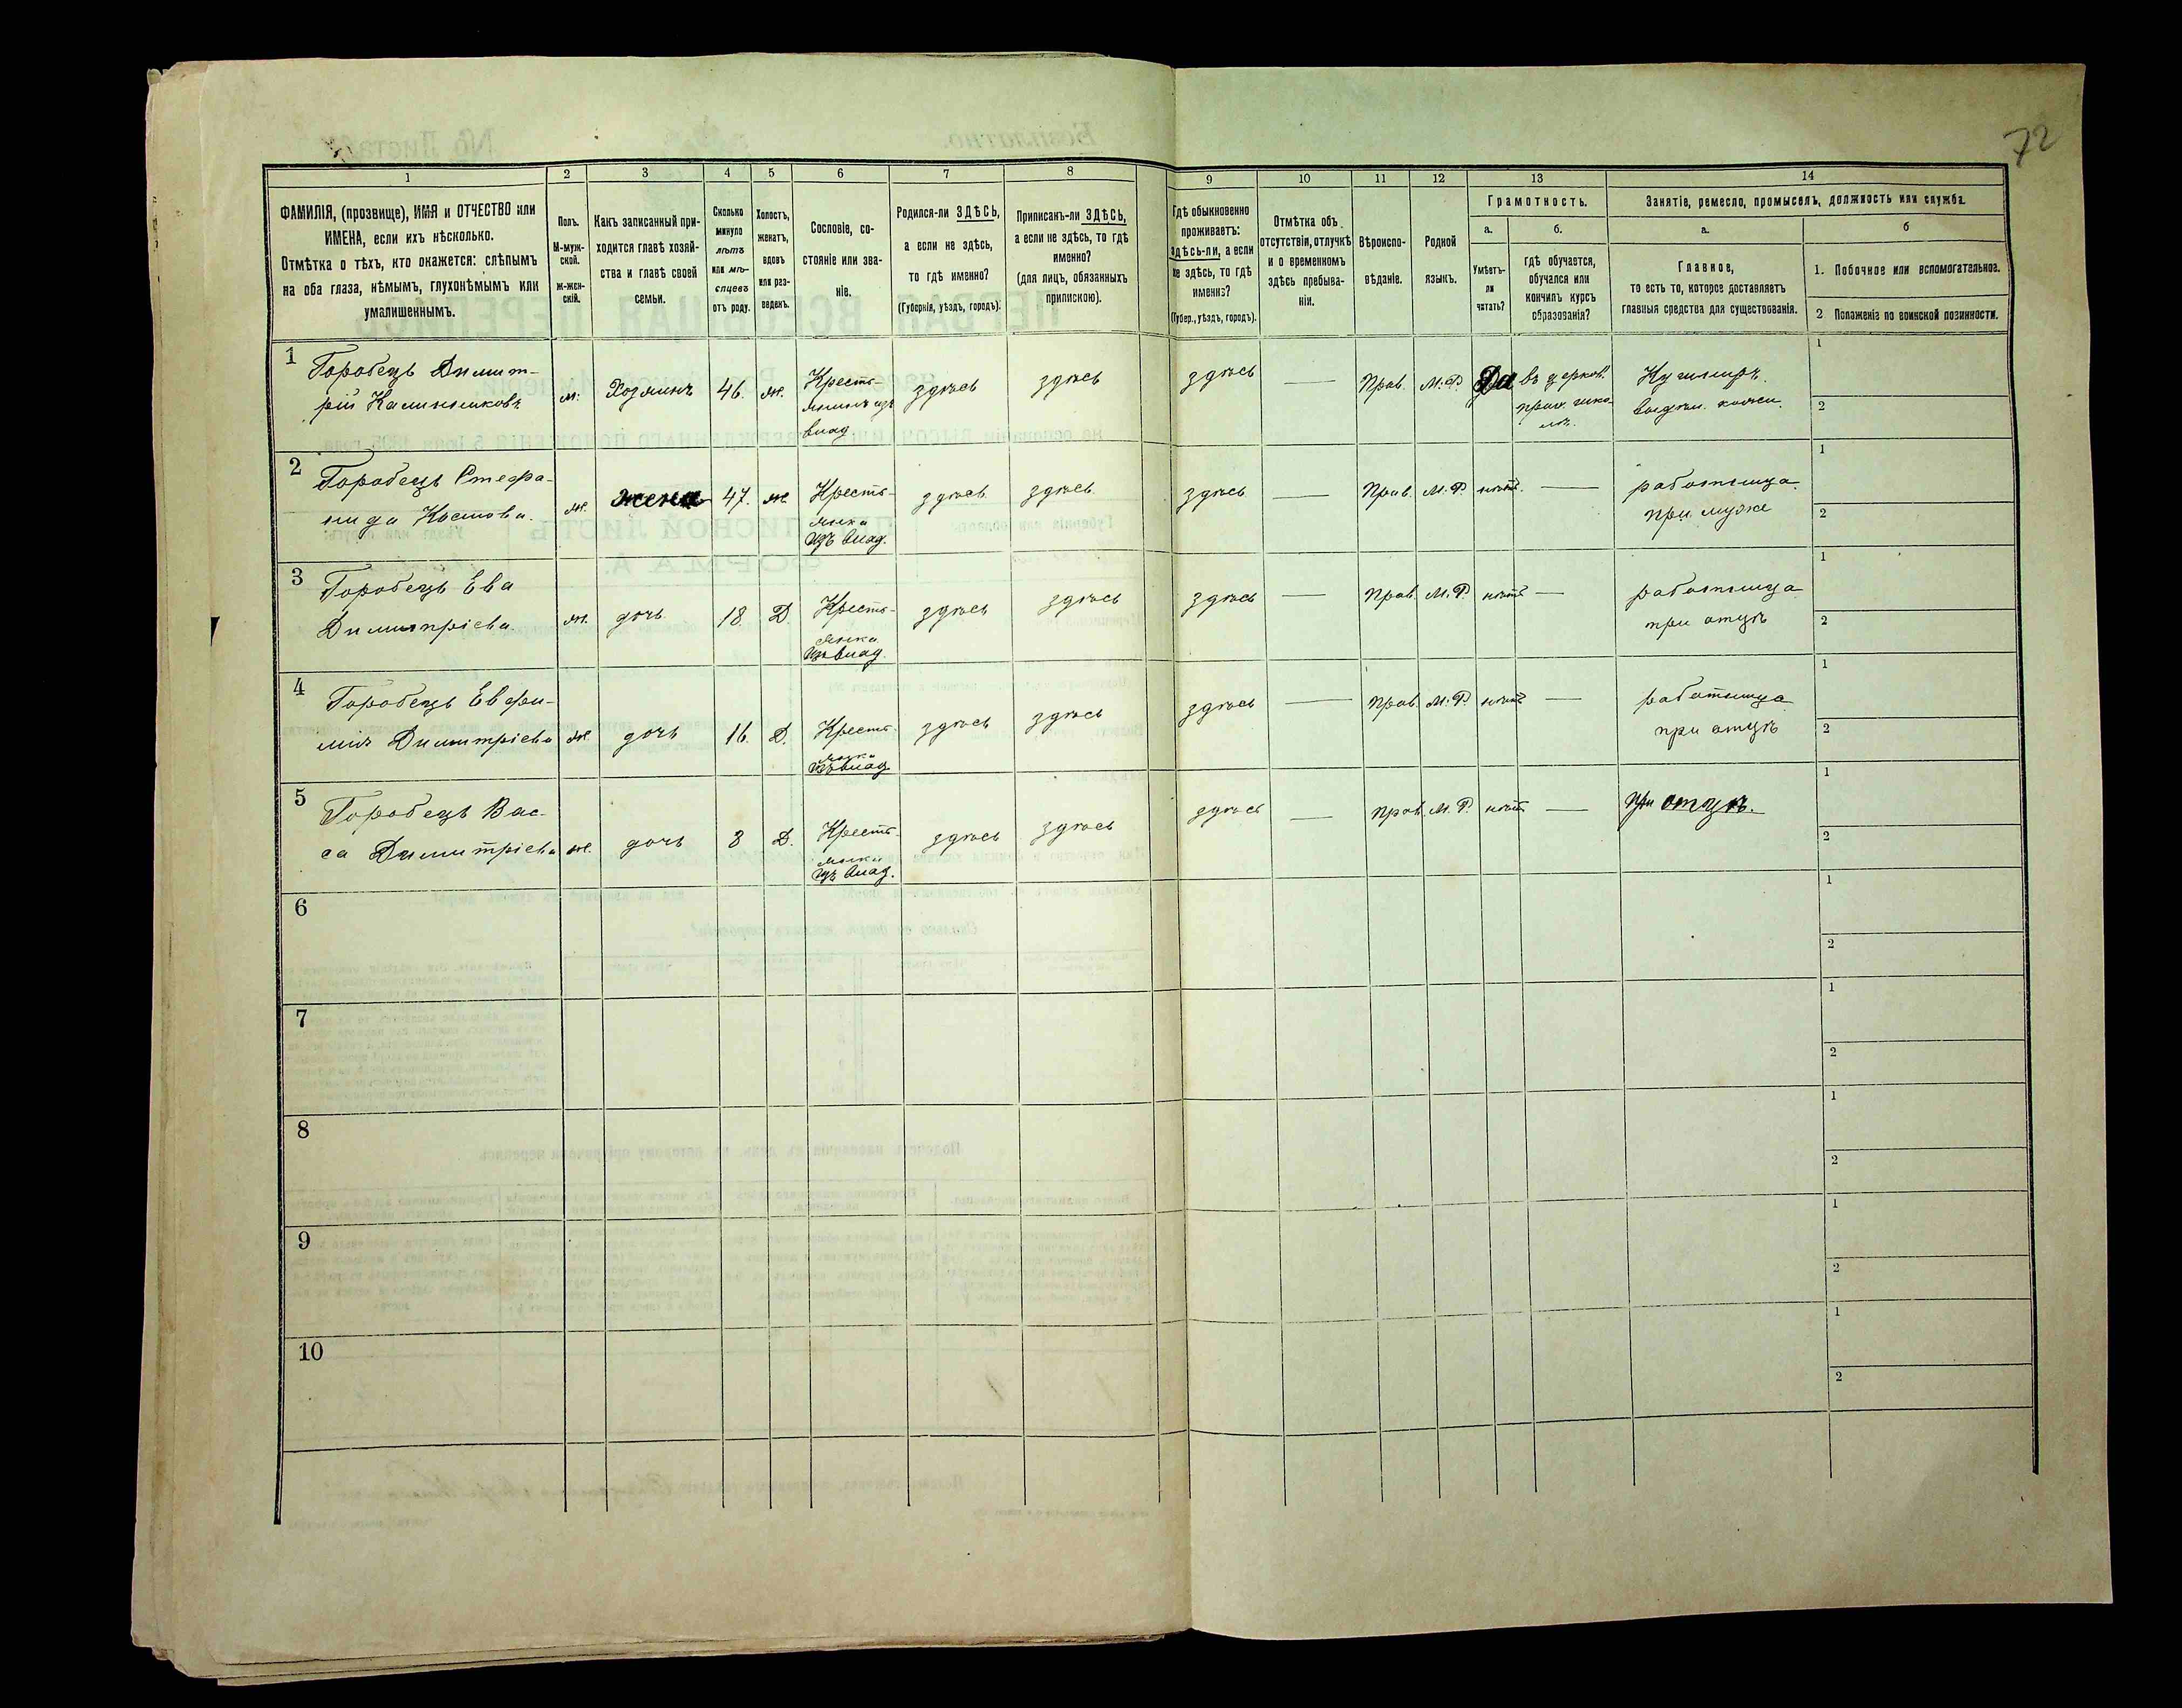 72
1
2
3
4
5
6
7
8
9
10
11
12
13
14
ФАМИЛІЯ, (прозвище), ИМЯ и ОТЧЕСТВО или
ИМЕНА, если ихъ нѣсколько.
Отмѣтка о тѣхъ, кто окажется: слѣпымъ
на оба глаза, нѣмымъ, глухонѣмымъ или
умалишеннымъ.
Полъ.
М-муж-
ской.
Ж-жен-
скій.
Какъ записанный при-
ходится главѣ хозяй-
ства и главѣ своей
семьи.
Сколько
минуло
лѣтъ
или мѣ-
сяцевъ
отъ роду.
Холостъ,
женатъ,
вдовъ
или раз-
веденъ.
Сословіе, со-
стояніе или зва-
ніе.
Родился-ли ЗДѢСЬ,
а если не здѣсь,
то гдѣ именно?
(Губернія, уѣздъ, городъ).
Приписанъ-ли ЗДѢСЬ,
а если не здѣсь, то гдѣ
именно?
(для лицъ, обязанныхъ
припискою).
Гдѣ обыкновенно
проживаетъ:
здѣсь-ли, а если
не здѣсь, то гдѣ
именно?
(Губер., уѣздъ, городъ).
Отмѣтка объ
отсутствіи, отлучкѣ
и о временномъ
здѣсь пребыва-
ніи.
Вѣроиспо-
вѣданіе.
Родной
языкъ.
Грамотность.
а.
Умѣетъ-
ли
читать?
б.
гдѣ обучается,
обучался или
кончилъ курсъ
образованія?
Занятіе, ремесло, промыселъ, должность или служба.
а.
Главное,
то есть то, которое доставляетъ
главныя средства для существованія.
б
1. Побочное или вспомогательное.
2 Положеніе по воинской повинности.
1
Горобецъ Димит-
рій Калиниковъ
м.
Хозяинъ
46.
ж.
Кресть-
янинъ изъ
влад
здѣсь
здѣсь
здѣсь
—
Прав.
М.Р.
Да
въ церков.
прих. шко-
лѣ.
Кушниръ.
выдѣл. кожи.
1
2
2
Горобецъ Стефа-
нида Костова.
ж.
жена
47.
ж.
Кресть-
янка
изъ влад.
здѣсь
здѣсь
здѣсь
—
Прав.
М.Р.
нѣтъ
—
работница
при мужѣ
1
2
3
Горобецъ Ева
Димитріева
ж.
дочь
18.
Д.
Кресть-
янка
изъ влад.
здѣсь
здѣсь
здѣсь
—
Прав.
М.Р.
нѣтъ
—
работница
при отцѣ
1
2
4
Горобецъ Евфи-
мія Димитріева
ж.
дочь
16.
Д.
Кресть-
янка
изъ влад
здѣсь
здѣсь
здѣсь
—
Прав.
М.Р.
нѣтъ
—
работница
при отцѣ
1
2
5
Горобецъ Вас-
са Димитріева
ж.
дочь
8
Д.
Кресть-
янка
изъ влад.
здѣсь
здѣсь
здѣсь
—
Прав.
М.Р.
нѣтъ
—
При отцѣ.
1
2
6
1
2
7
1
2
8
1
2
9
1
2
10
1
2